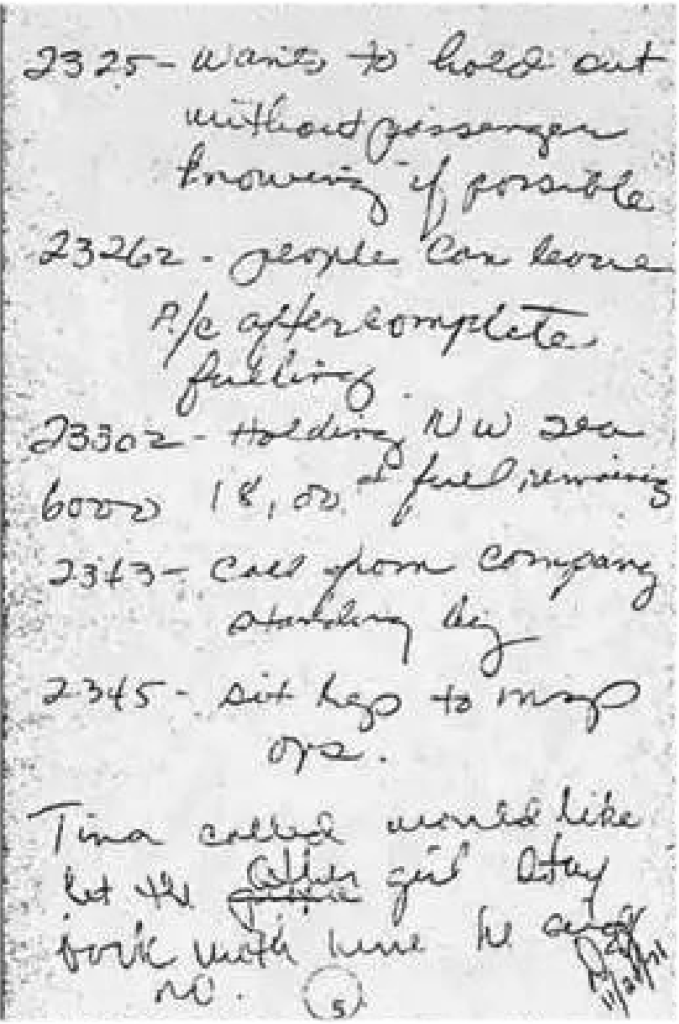 2325 - wants to hold out
without passenger
knowing if possible
2326z - people can leave
A/C after complete
fueling
2330z - Holding NW Sea
6000 18,00 fuel remaining
2343 - Call from Company
standing by
2345 - sit rep to msp
ops.
Tina called would like
let the other girl stay
back with him he
no. 5
11/24/71